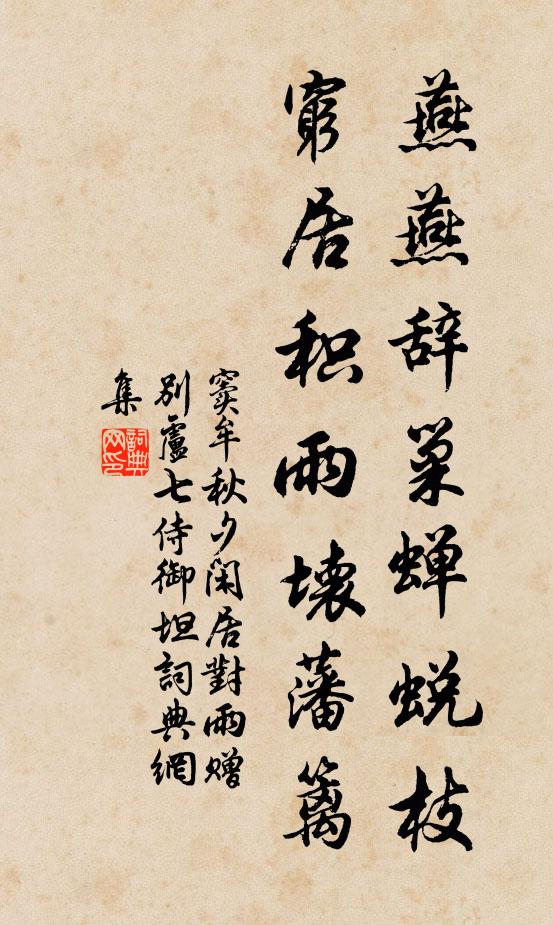 燕燕辞巢蝉蜕枝
穷居积雨坏藩篱
窦牟秋夕闲居對雨赠
别盧七侍御坦詞典網
集
詞典網印